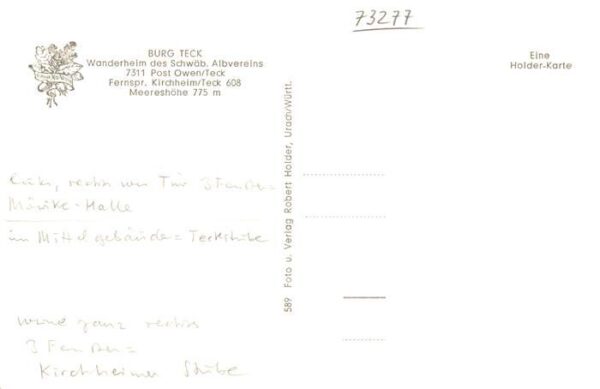 73277
BURG TECK
Wanderheim des Schwäb. Albvereins
7311 Post Owen/Teck
Fernspr. Kirchheim/Teck 608
Meereshöhe 775 m
Eine
Holder-Karte
589 Foto u. Verlag Robert Holder, Urach/Württ.
links, rechts von Tür 3 Fenster =
Mörike-Halle
im Mittelgebäude = Teckstube
ganz rechts
3 Fenster =
Kirchheimer Stube